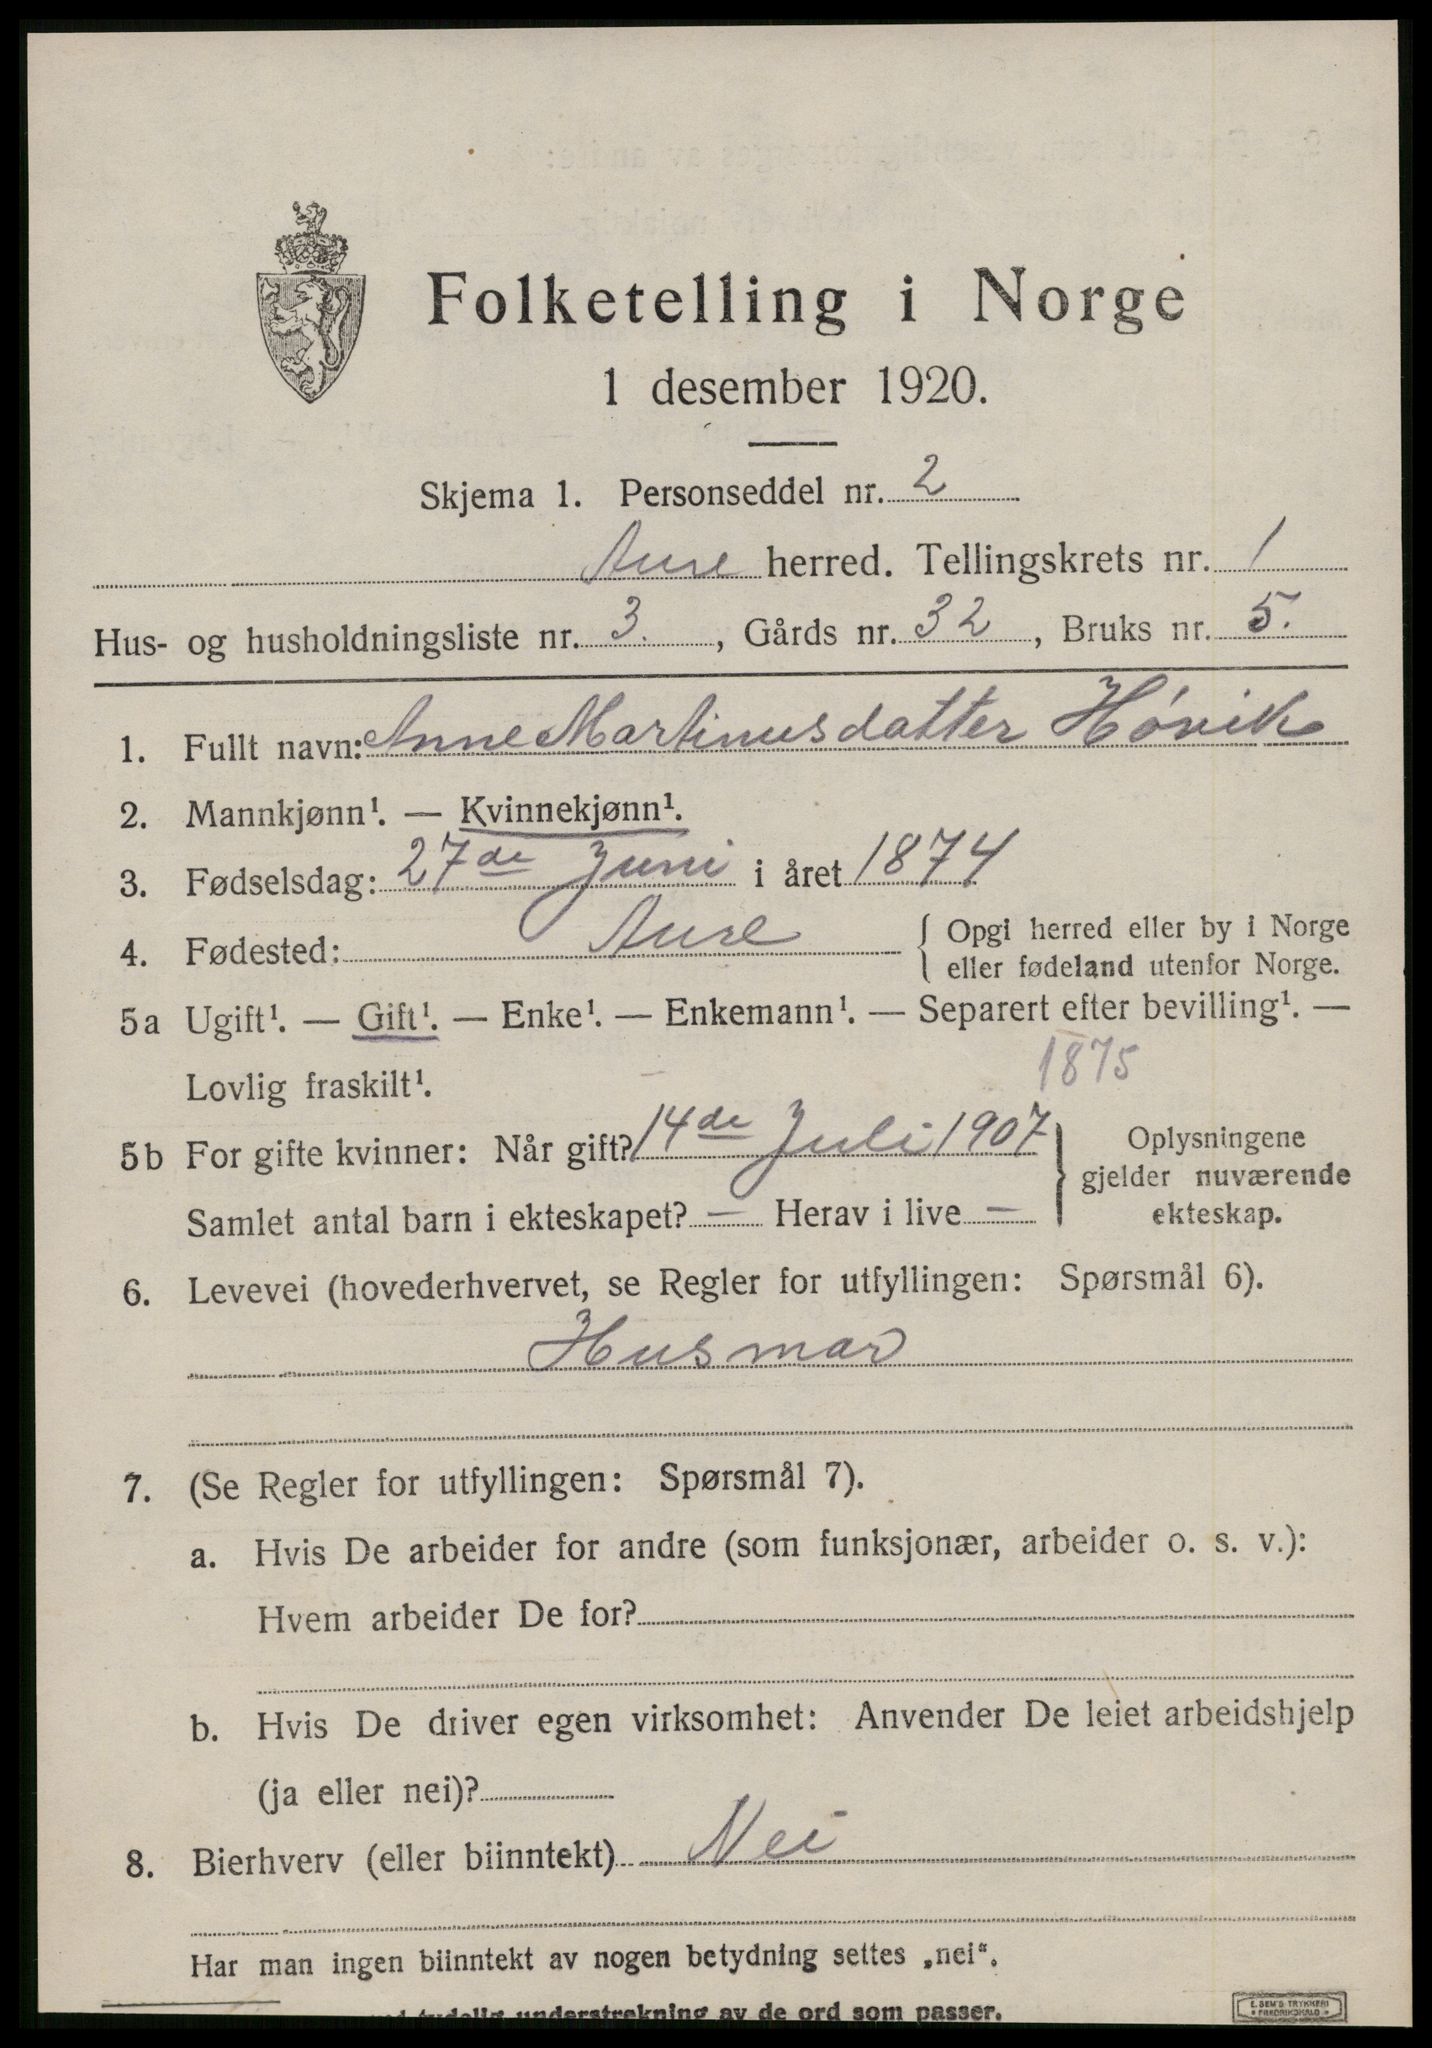 Folketelling i Norge
1 desember 1920.
Skjema 1. Personseddel nr. 2
Aure herred. Tellingskrets nr. 1
Hus- og husholdningsliste nr. 3. , Gårds nr. 32 , Bruks nr. 5.
1. Fullt navn: Anne Martinusdatter Høvik
2. Mannkjønn¹. — Kvinnekjønn¹.
3. Fødselsdag: 27de Juni i året 1874
4. Fødested: Aure { Opgi herred eller by i Norge
eller fødeland utenfor Norge.
5a Ugift¹. — Gift¹. — Enke¹. — Enkemann¹. — Separert efter bevilling¹. —
Lovlig fraskilt¹. — 1875
5b For gifte kvinner: Når gift? 14de Juli 1907 } Oplysningene
gjelder nuværende
Samlet antal barn i ekteskapet? — Herav i live — ekteskap.
6. Levevei (hovederhvervet, se Regler for utfyllingen: Spørsmål 6).
Husmor
7. (Se Regler for utfyllingen: Spørsmål 7).
a. Hvis De arbeider for andre (som funksjonær, arbeider o. s. v.):
Hvem arbeider De for?
b. Hvis De driver egen virksomhet: Anvender De leiet arbeidshjelp
(ja eller nei)?
8. Bierhverv (eller biinntekt) Nei
Har man ingen biinntekt av nogen betydning settes „nei“.
tydelig understrekning av de ord som passer.
E. SEM'S TRYKKERI
FREDRIKSHALD